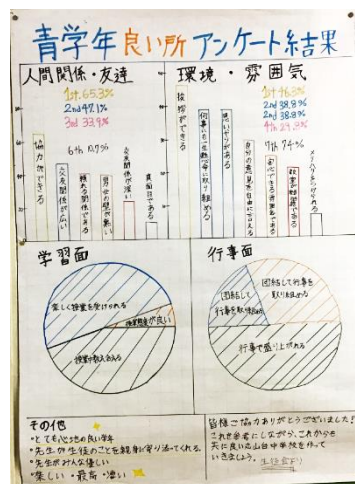 青学年良い所アンケート結果
人間関係・友達
1st 65.3%
2nd 47.1%
3rd 33.9%
6th 10.7%
協力ができる
交友関係が広い
頼れる関係である
男女の壁が無い
交友関係が深い
真面目である
環境・雰囲気
1st 46.3%
2nd 38.8%
2nd 38.8%
4th 29.8%
7th 7.4%
挨拶ができる
何事にも一生懸命に取り組める
思いやりがある
自分の意見を自由に言える
安心できる雰囲気である
メリハリをつけられる
学習面
楽しく授業を受けられる
授業態度が良い
授業で教え合える
行事面
団結して行事を
取り組める
団結して
行事を取り組める
行事で盛り上がれる
その他
・とても心地の良い学年
・先生が生徒のことを親身に寄り添ってくれる。
・先生がみんな優しい
・楽しい・最高・凄い
皆様ご協力ありがとうございました!
これを参考にしながら、これからも
共に良い山台中学校を作って
いきましょう。
生徒会より